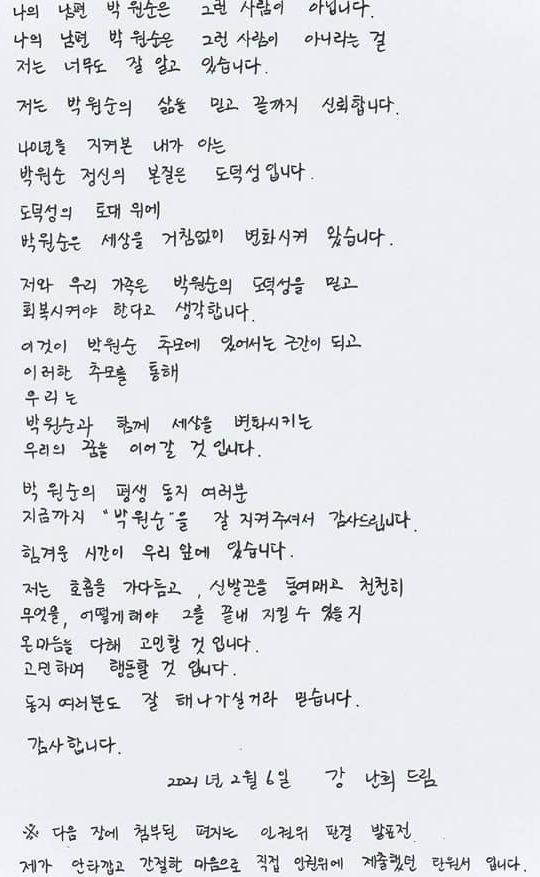 나의 남편 박 원순은 그런 사람이 아닙니다.
나의 남편 박 원순은 그런 사람이 아니라는 걸
저는 너무도 잘 알고 있습니다.
저는 박원순의 삶을 믿고 끝까지 신뢰합니다.
40년을 지켜본 내가 아는
박원순 정신의 본질은 도덕성입니다.
도덕성의 토대 위에
박원순은 세상을 거침없이 변화시켜 왔습니다.
저와 우리 가족은 박원순의 도덕성을 믿고
회복시켜야 한다고 생각합니다.
이것이 박원순 추모에 있어서는 근간이 되고
이러한 추모를 통해
우리는
박원순과 함께 세상을 변화시키는
우리의 꿈을 이어갈 것 입니다.
박 원순의 평생 동지 여러분
지금까지 "박원순"을 잘 지켜주셔서 감사드립니다.
힘겨운 시간이 우리 앞에 있습니다.
저는 호흡을 가다듬고, 신발끈을 동여매고 천천히
무엇을, 어떻게해야 그를 끝내 지킬 수 있을지
온마음을 다해 고민할 것 입니다.
고민하며 행동할 것 입니다.
동지 여러분도 잘 해나가실거라 믿습니다.
감사합니다.
2021년 2월 6일 강 난희 드림
※ 다음 장에 첨부된 편지는 인권위 판결 발표전
제가 안타깝고 간절한 마음으로 직접 인권위에 제출했던 탄원서 입니다.